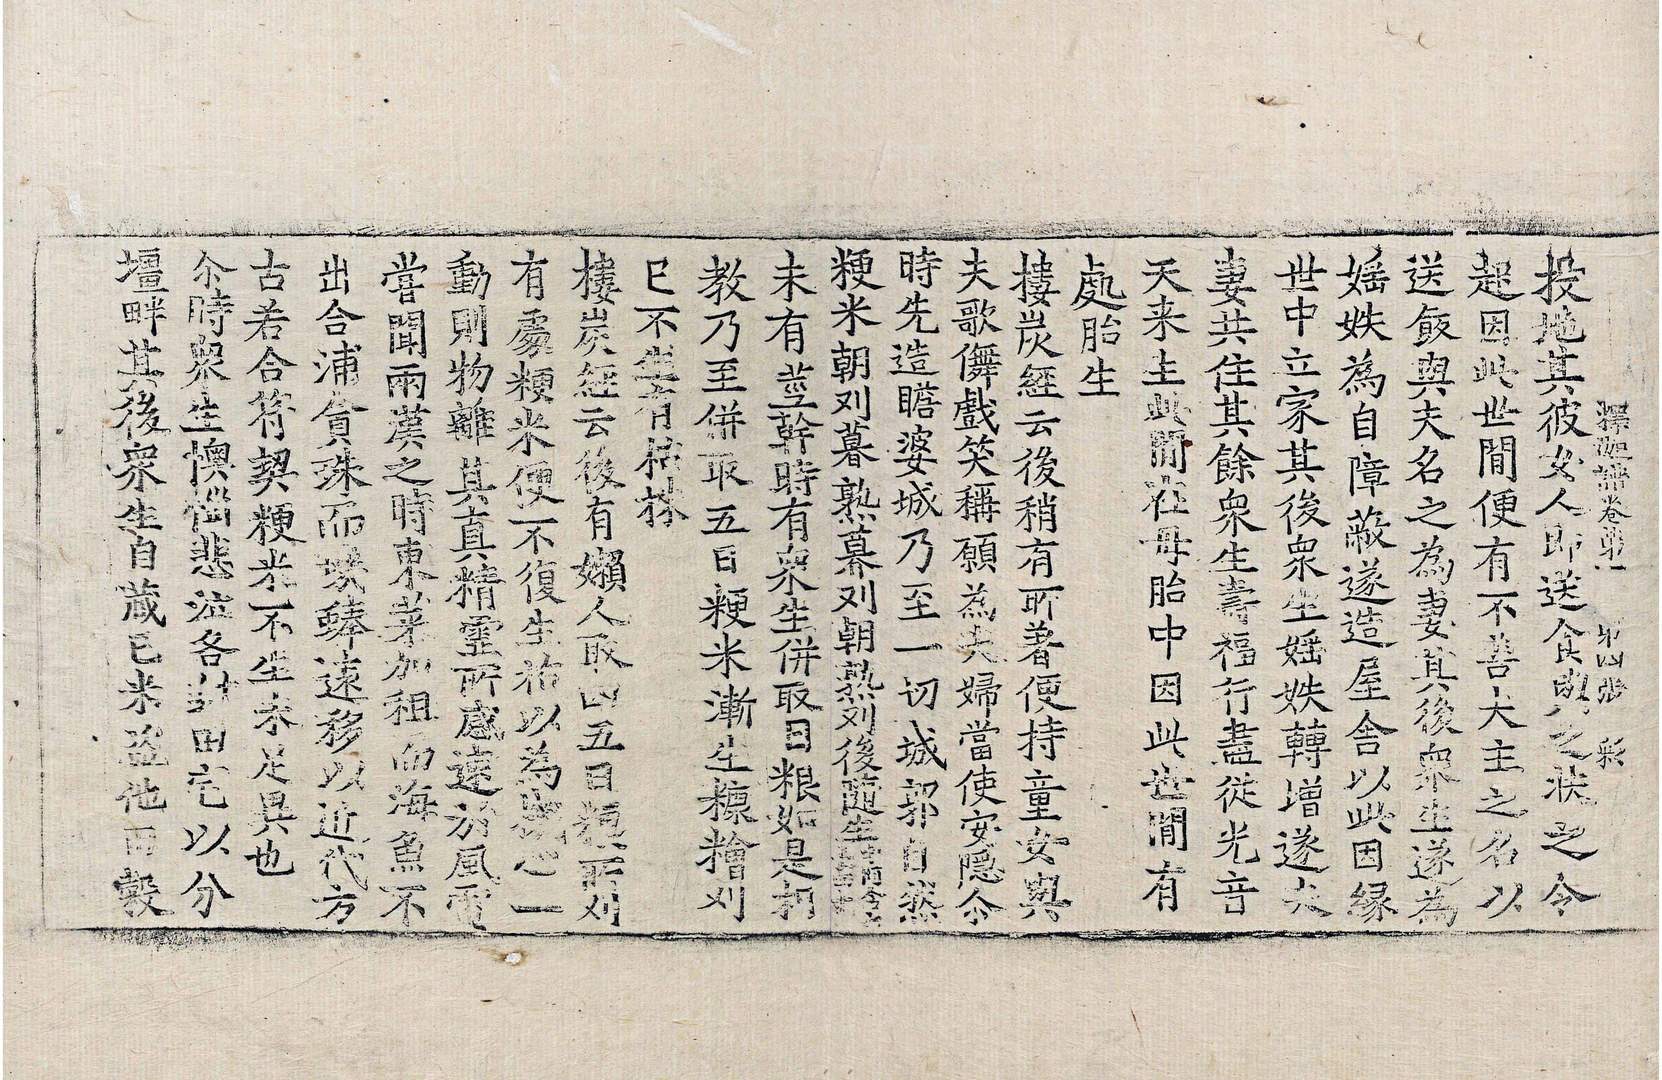 釋迦譜卷第一 第四張
投地其彼女人即送食之扶之令
起因此世間便有不善夫主之名以
送飯與夫名之為妻其後衆生遂為
婬妷為自障蔽遂造屋舍以此因緣
世中立家其後衆生婬妷轉增遂夫
妻共住其餘衆生壽福行盡從光音
天来生此間在母胎中因此世間有
處胎生
樓炭經云後稍有所著便持童女與
夫歌儛戲笑稱願為夫婦當使安隱尒
時先造瞻婆城乃至一切城郭自然
粳米朝刈暮熟暮刈朝熟刈後隨生
未有莖幹時有衆生併取日粮如是相
教乃至併取五日粳米漸生糠糩刈
已不生有枯株
樓炭經云後有嬾人取四五日粳所刈
有處粳米便不復生枯以為心一
動則物離其真精靈所感速於風電
嘗聞兩漢之時東萊加租而海魚不
出合浦貪珠而蚌遠移以近代方
古若合符契粳米不生未足異也
尒時衆生懊惱悲泣各封田宅以分
壃畔其後衆生自藏已米盜他田穀